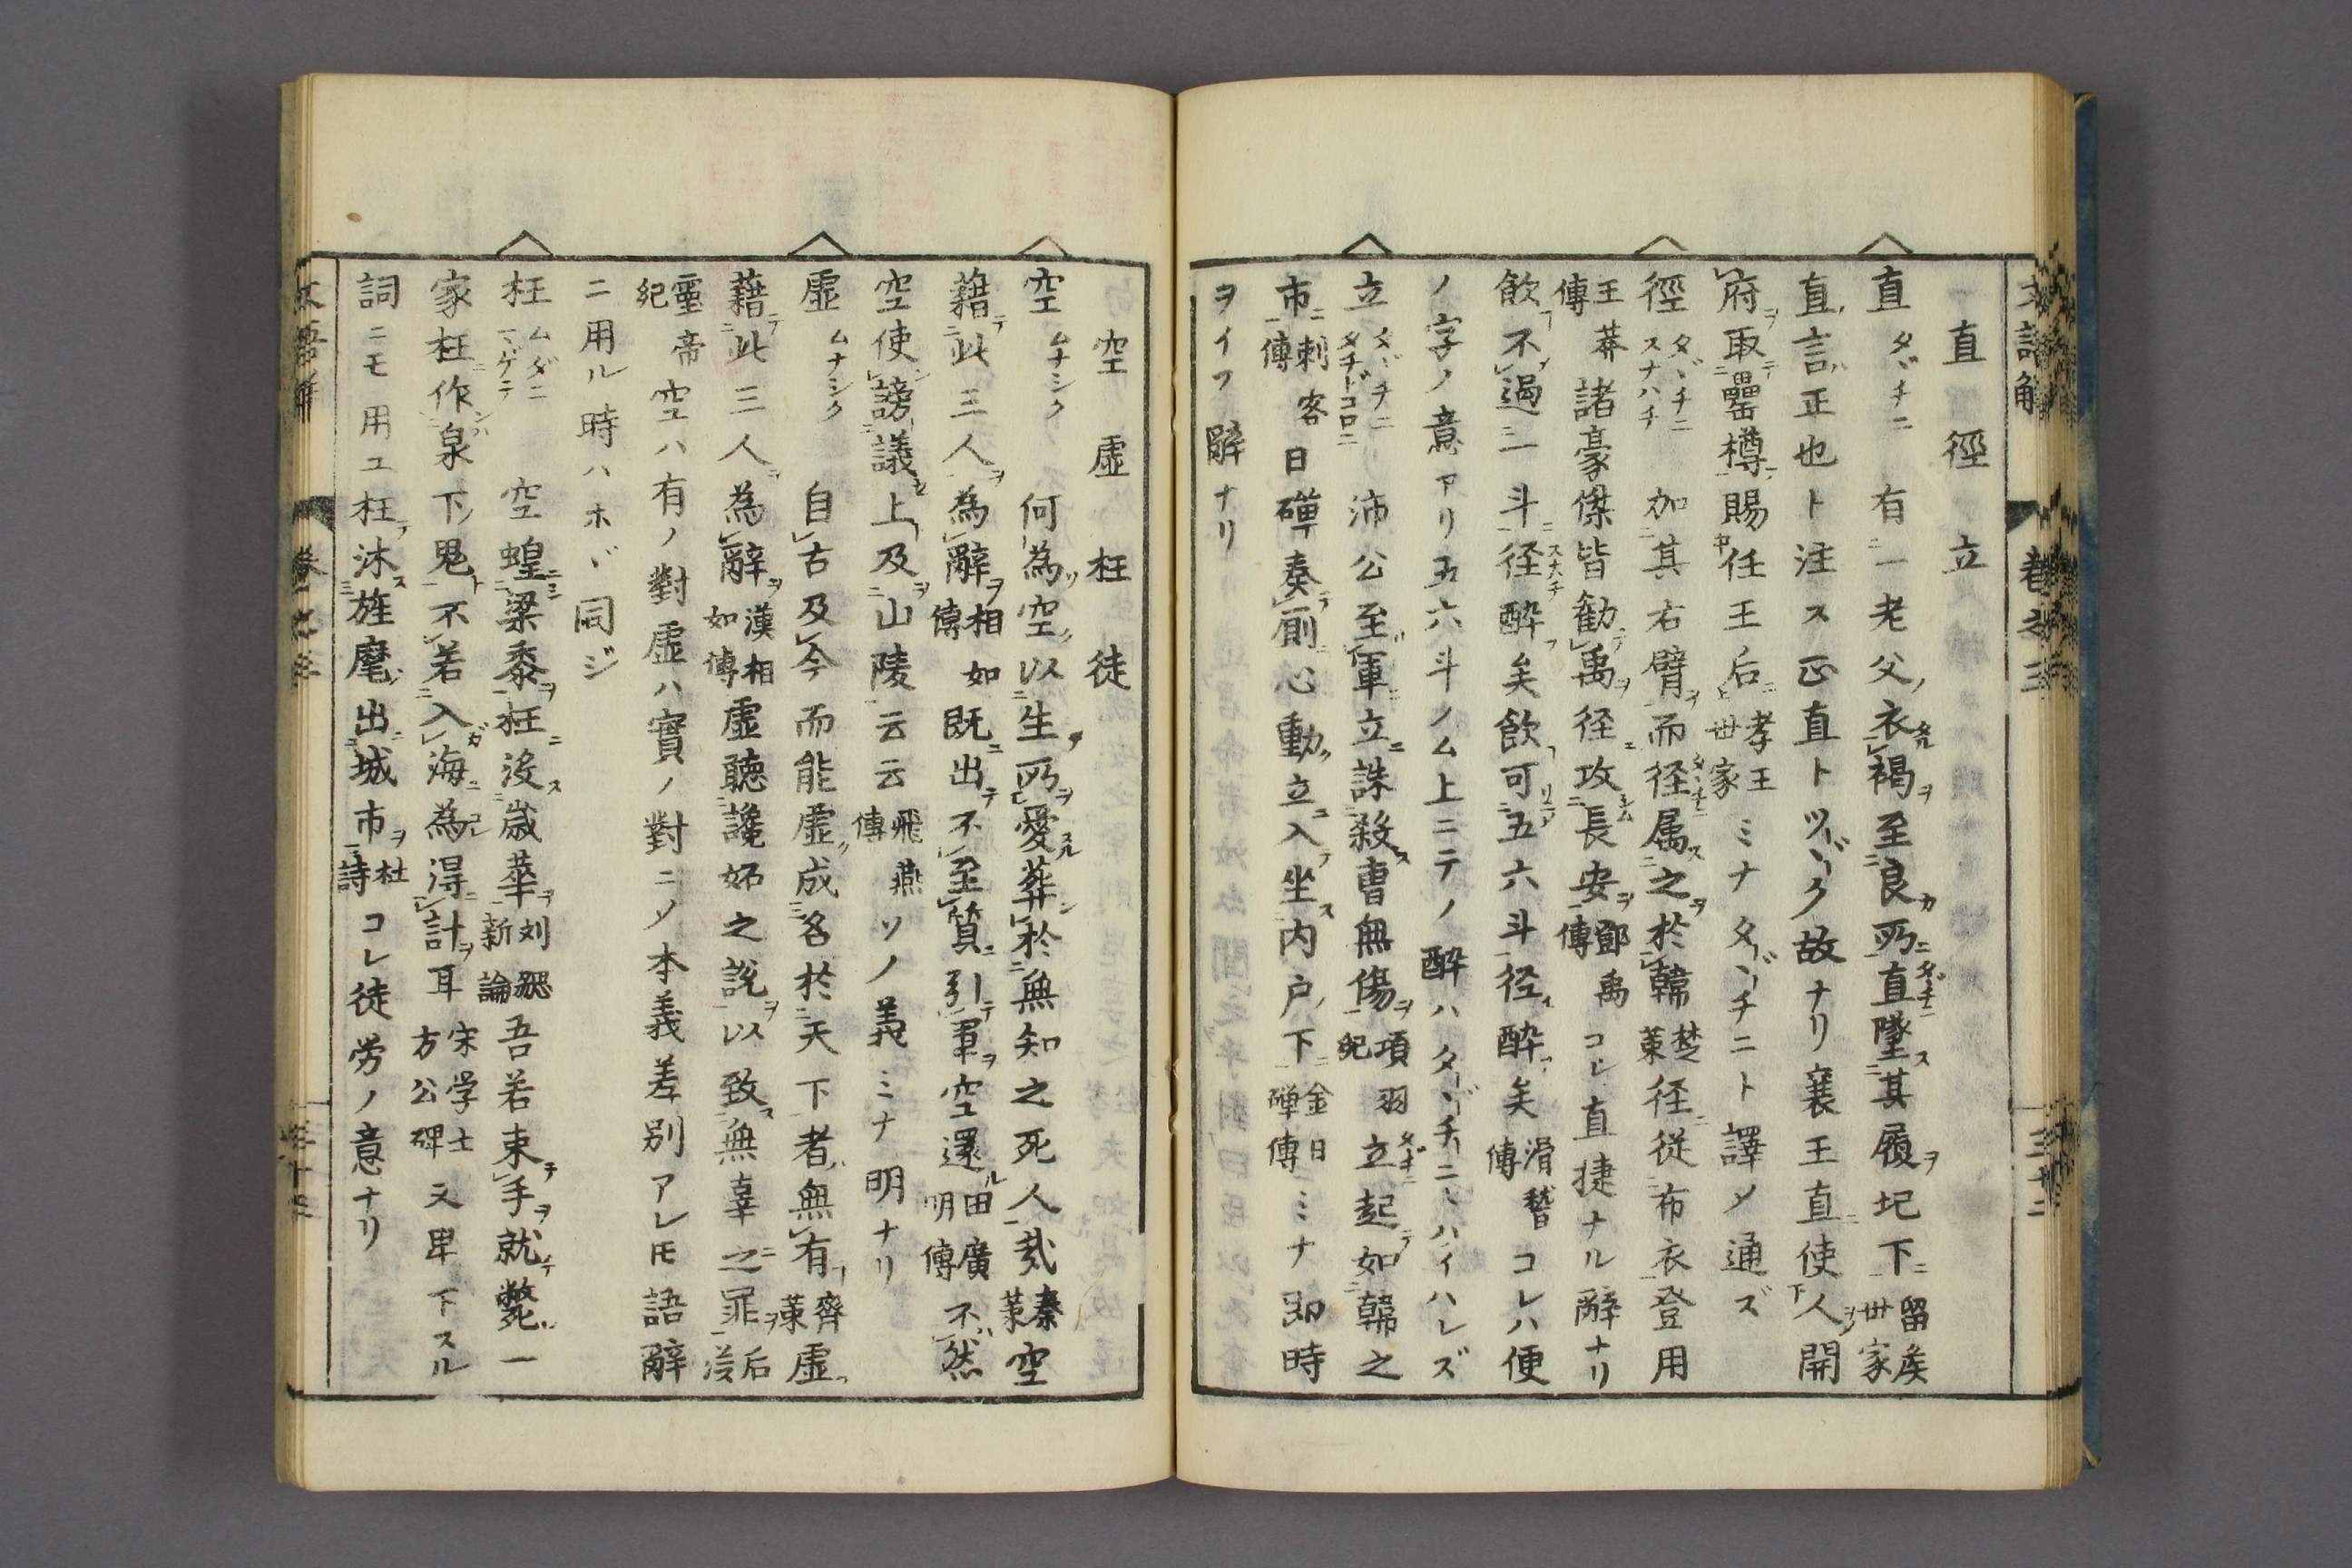 直 徑 立
直 タヾチニ 有一老父衣褐至良所直墜其履圯下 留矦世家
直言正也ト注ス正直トツヾク故ナリ襄王直使人開
府取罍樽賜任王后 孝王世家 ミナタヾチニト譯メ通ズ
徑 タヾチニ スナハチ 加其右臂而径属之於韓 楚策 径従布衣登用
王莽傳 諸豪傑皆勧禹径攻長安 鄧禹傳 コレ直捷ナル辭ナリ
飲不過一斗径酔矣飲可五六斗径酔矣 滑稽傳 コレハ便
ノ字ノ意アリ五六斗ノム上ニテノ酔ハタヾチニヽハイハレズ
立 タヾチニ タチドコロニ 沛公至軍立誅殺曹無傷 項羽紀 立起如韓之
市 刺客傳 日磾奏厠心動立入坐内戸下 金日磾傳 ミナ即時
ヲイフ辭ナリ
空 虚 枉 徒
空 ムナシク 何為空以生所愛葬於無知之死人哉 秦策 空
藉此三人為辭 相如傳 既出不至質引軍空還 田廣明傳 不然
空使謗議上及山陵云云 飛燕傳 ソノ義ミナ明ナリ
虚 ムナシク 自古及今而能虚成名於天下者無有 齊策 虚
藉此三人為辭 漢相如傳 虚聴讒妬之説以致無辜之罪 后漢
靈帝紀 空ハ有ノ對虚ハ實ノ對ニソ本義差別アレ𪜈語辭
ニ用ル時ハホヾ同ジ
枉 ムダニ マゲテ 空蝗梁黍枉没歳華 刘勰新論 吾若束手就斃一
家枉作泉下鬼不若入海為得計耳 宋学士方公碑 又卑下スル
詞ニモ用ユ枉沐旌麾出城市 杜詩 コレ徒労ノ意ナリ
巻之三
三十二